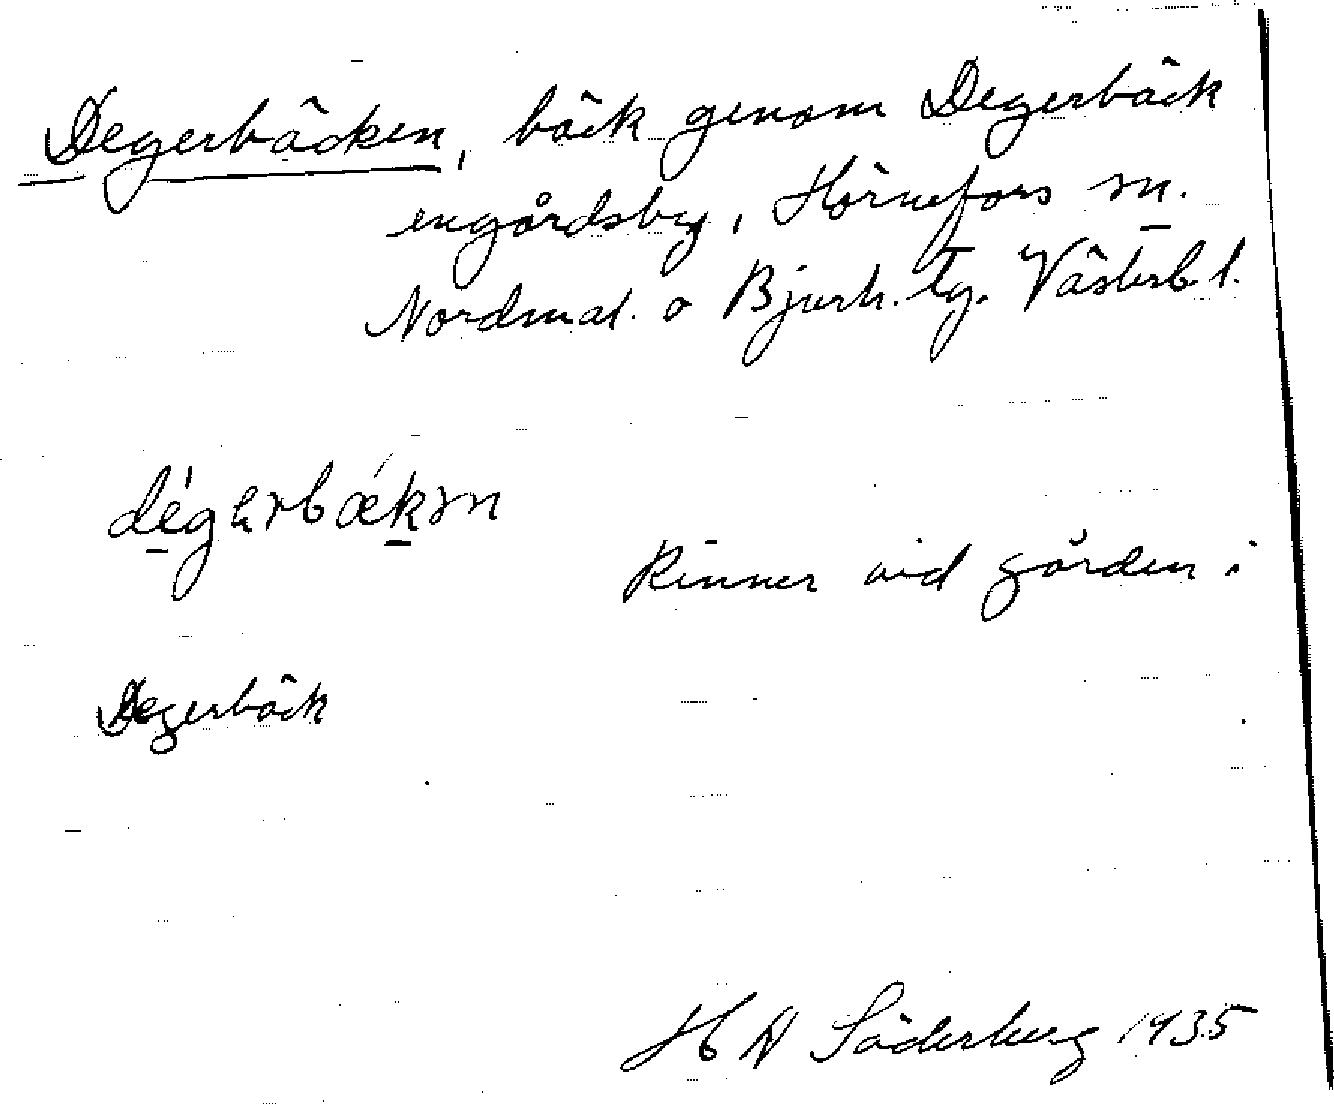 Degerbäcken, bäck genom Degerbäck
engårdsby, Hörnefors sn.
Nordmal. o Bjurh. tg. Västerb l.
dégərbækən
Rinner vid gården i
Degerbäck
H N Söderberg 1935